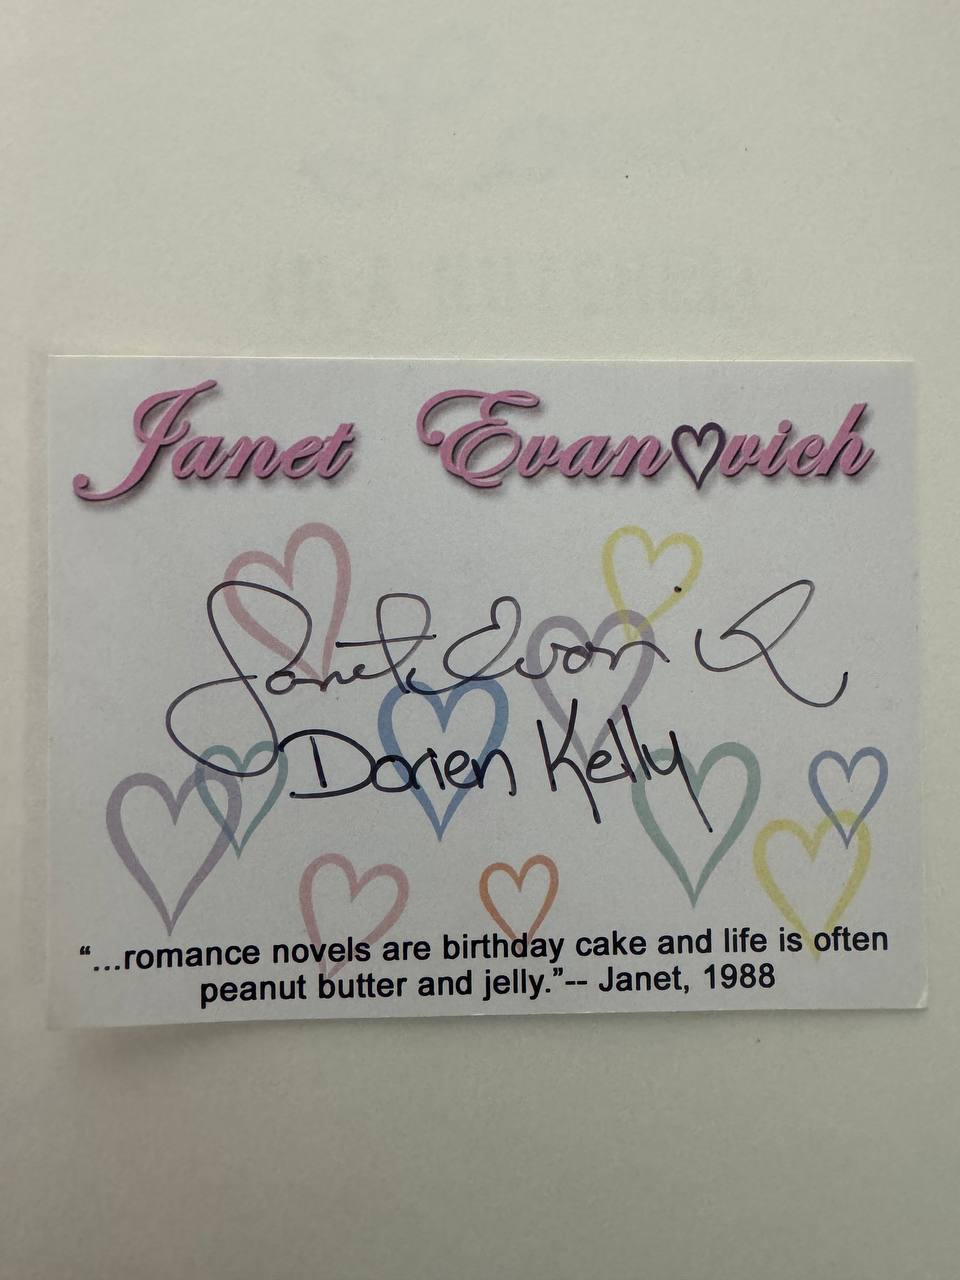 Janet Evanovich
Janet Evanovich
Dorien Kelly
“...romance novels are birthday cake and life is often
peanut butter and jelly.”-- Janet, 1988